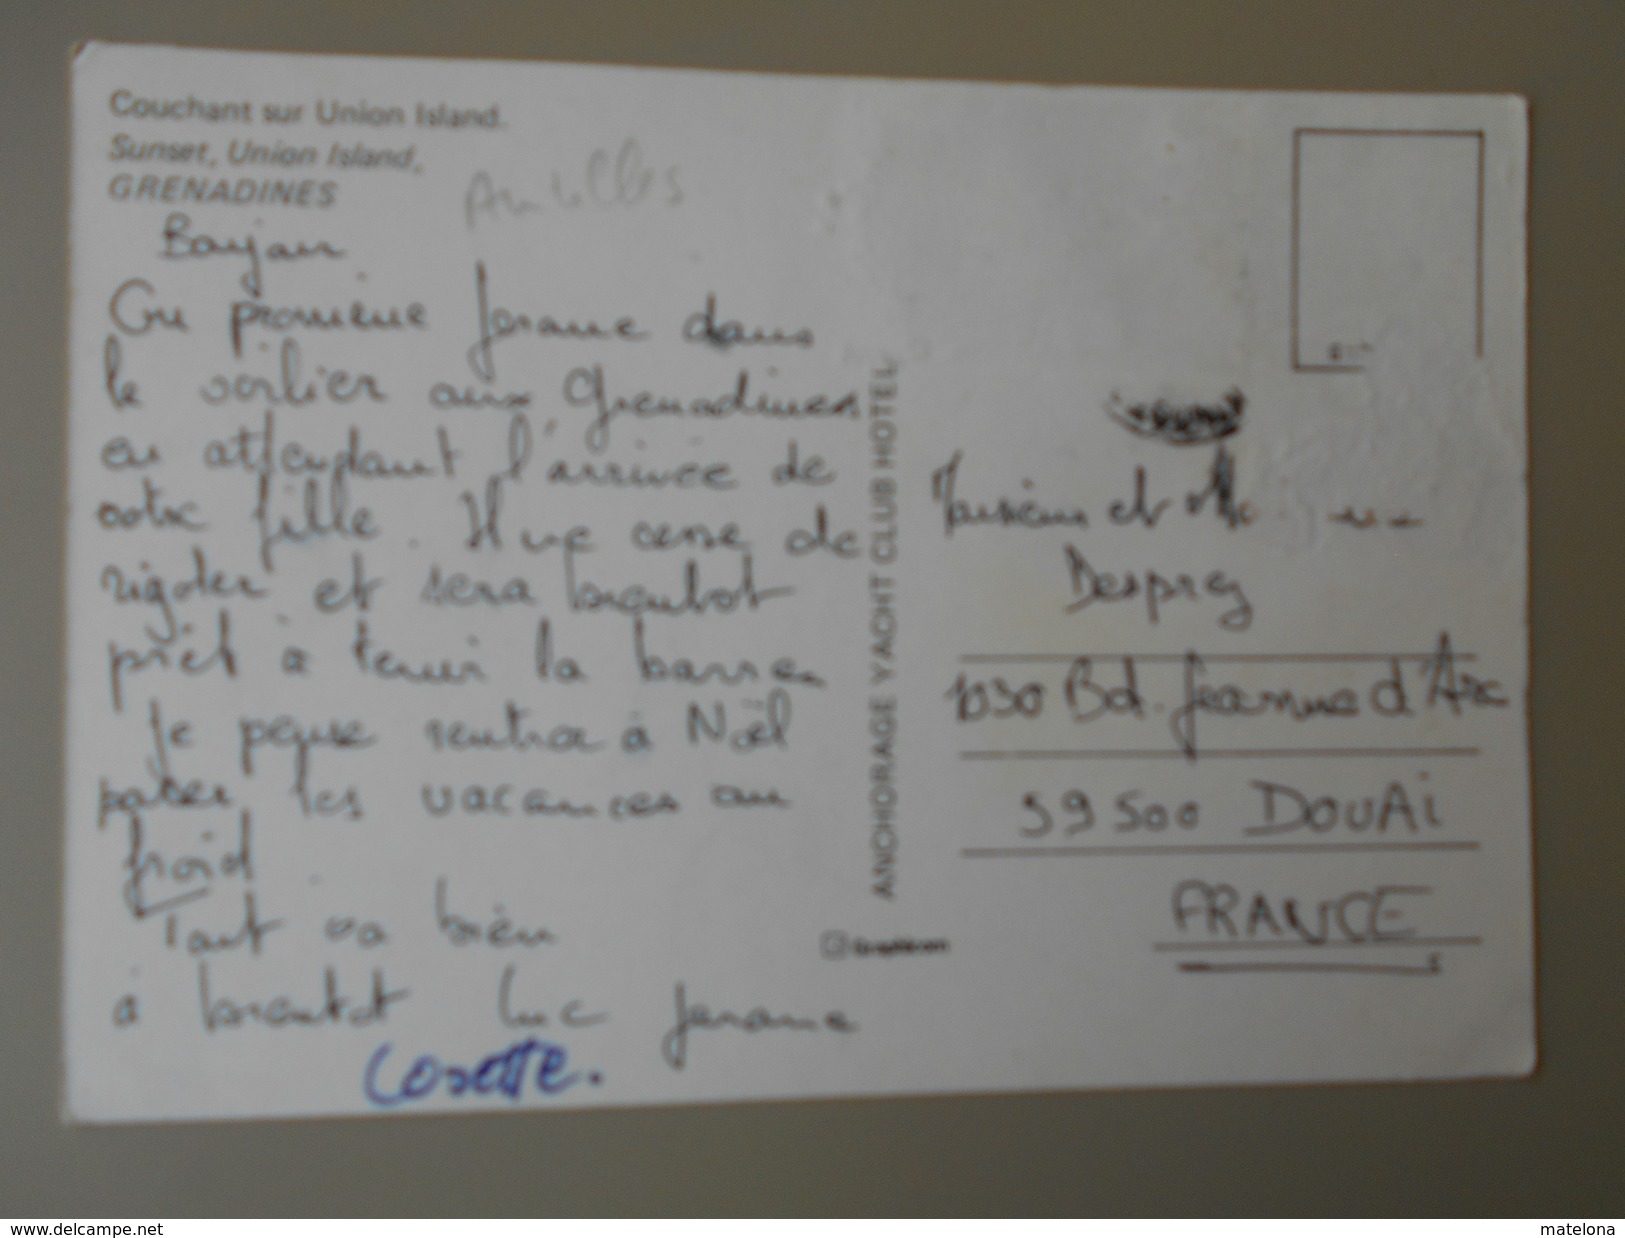 Couchant sur Union Island.
Sunset, Union Island,
GRENADINES
Antilles
Bonjour
On promène Jerome dans
le voilier aux Grenadines
en attendant l'arrivée de
votre fille. Il ne cesse de
rigoler et sera bientot
prêt à tenir la barre.
Je pense rentrer à Noël
passer les vacances au
froid
Tout va bien
à bientot Luc Jerome
Cosette.
ANCHORAGE YACHT CLUB HOTEL
Graphicom
Monsieur et
Desprez
1030 Bd. Jeanne d'Arc
59500 DOUAI
FRANCE
www.delcampe.net
matelona